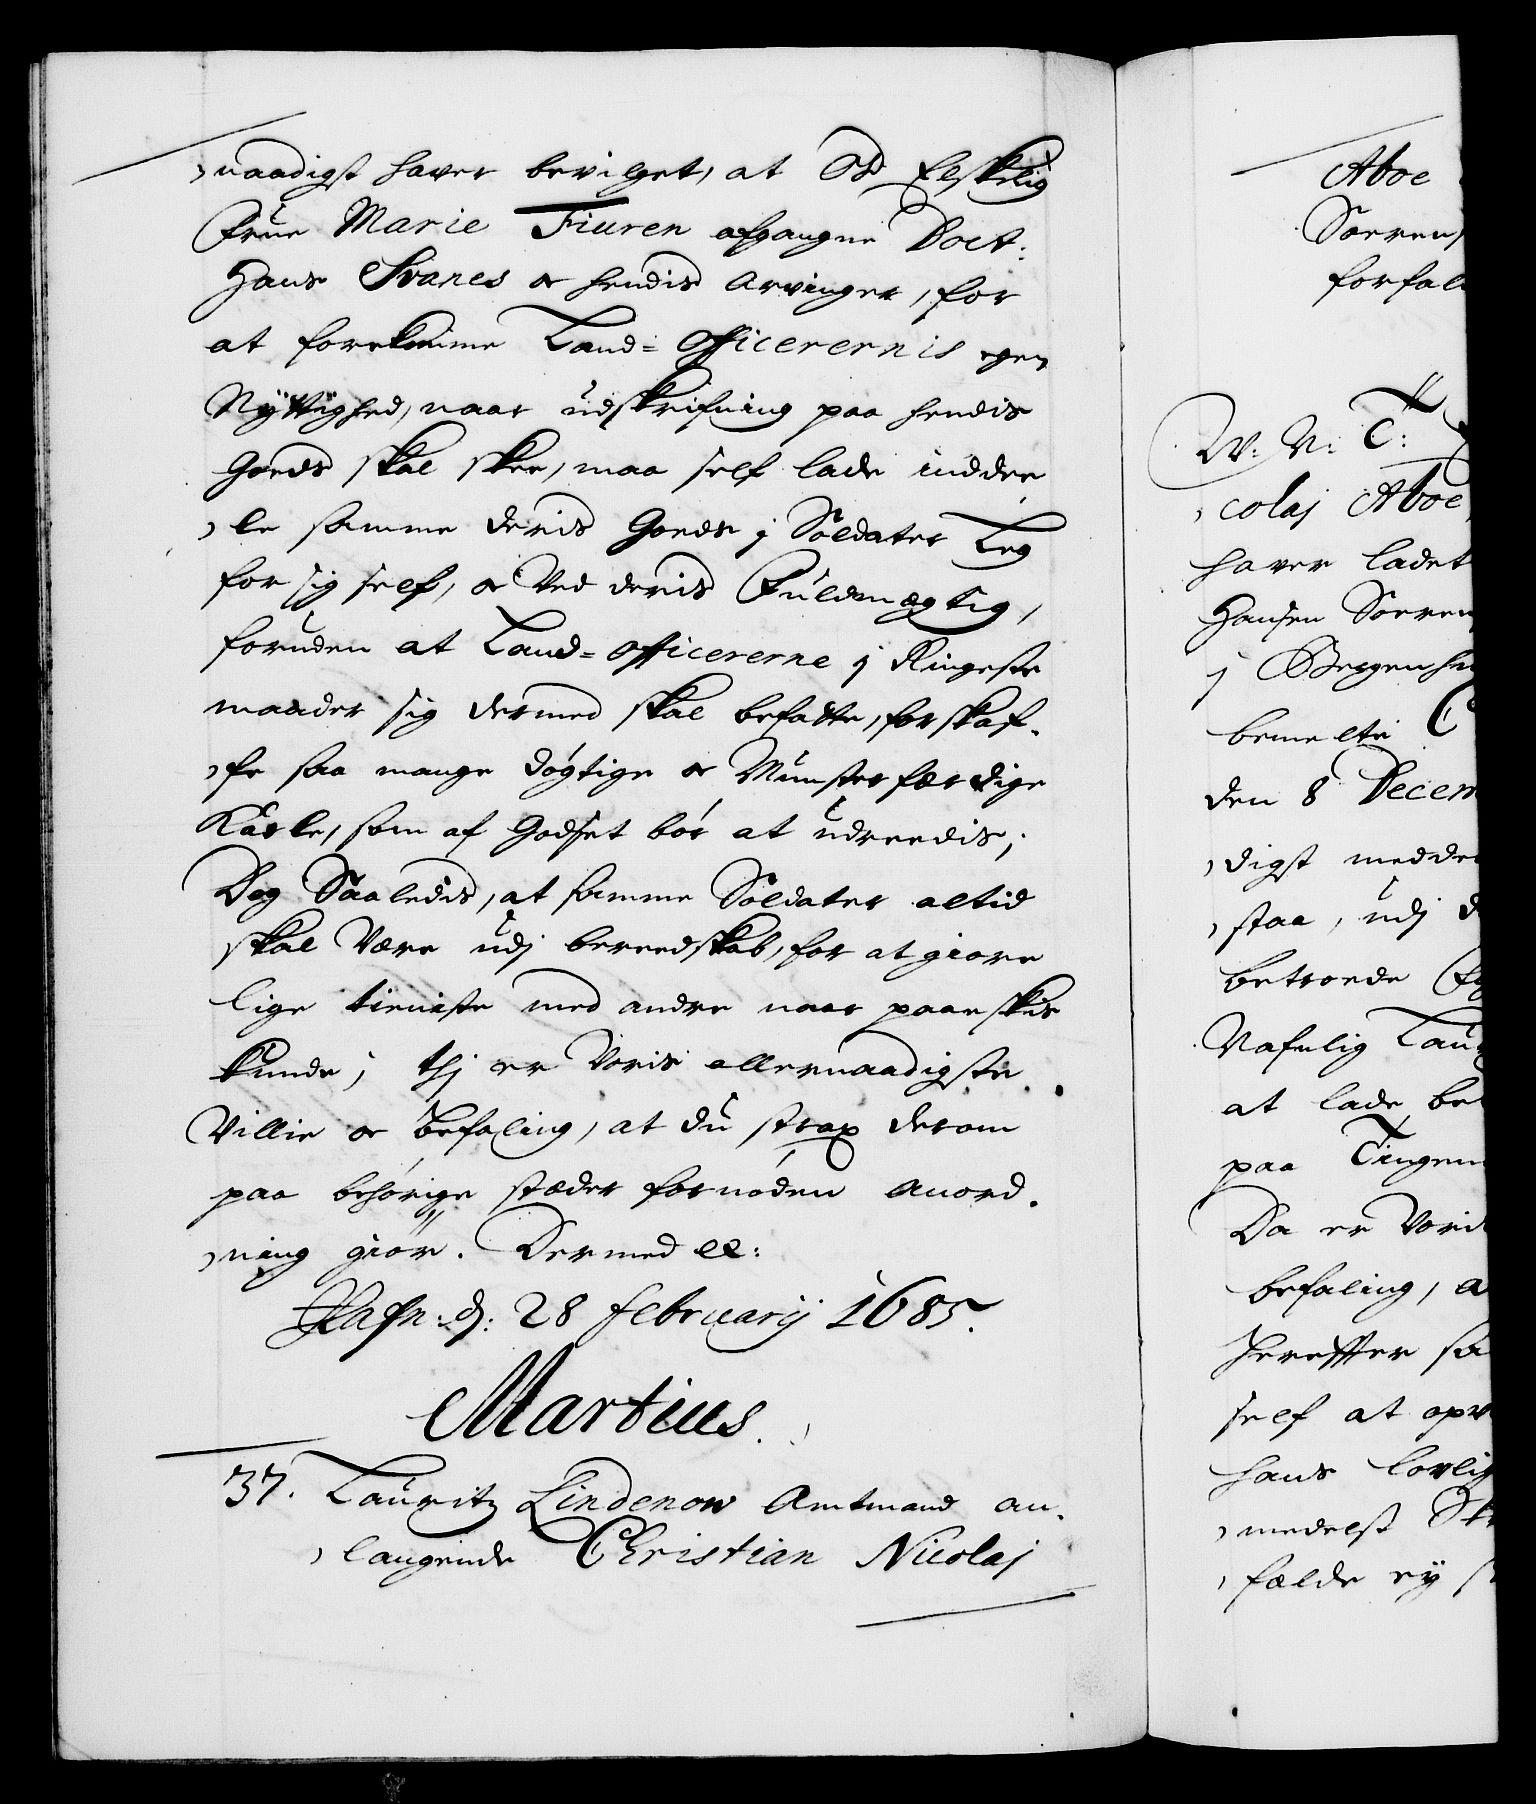 naadigst haver bevilget, at Os Elskelig
Frue Marie Fiuren afgangne Doct:
Hans Svanes oc hendis Arvinger, for
at forekomme Land= Officerernis egen
Nÿttighed, naar udskrifning paa hendis
Goeds skal skee, maa self lade inddee
le samme deris Goeds j Soldater Leg
for sig self, oc Ved deris Fuldmægtig,
foruden at Land= Officererne j Ringeste
maader sig dermed skal befatte, forskaf-
fe saa mange døgtige oc Munsterferdige
Karle, som af Godset bør at udreedis;
Dog Saaledis, at samme Soldater altid
skal Være udj bereedskab, for at giøre
lige tieniste med andre naar paaeskis
kunde; thj er Voris allernaadigste
Villie oc Befaling, at du strax derom
paa behørige stæder fornøden Anord-
ning giør. Dermed etc:
Hafn: d: 28 Februarij 1685.
Martius.
37. Lauritz Lindenow Amtmand an-
langende Christian Nicolaj
Aboe
Søren
forfal
W: V: T:
colaj Aboe
haver ladet
Hansen Søren
j Bergenhu
bemelte C
den 8 Decem
digst medde
staa, udj d
betroede
Vafelig Lau
at lade be
paa Tingen
Da er Vori
befaling, a
hereffter sa
self at opv
hans lovlig
medelst
fælde ey